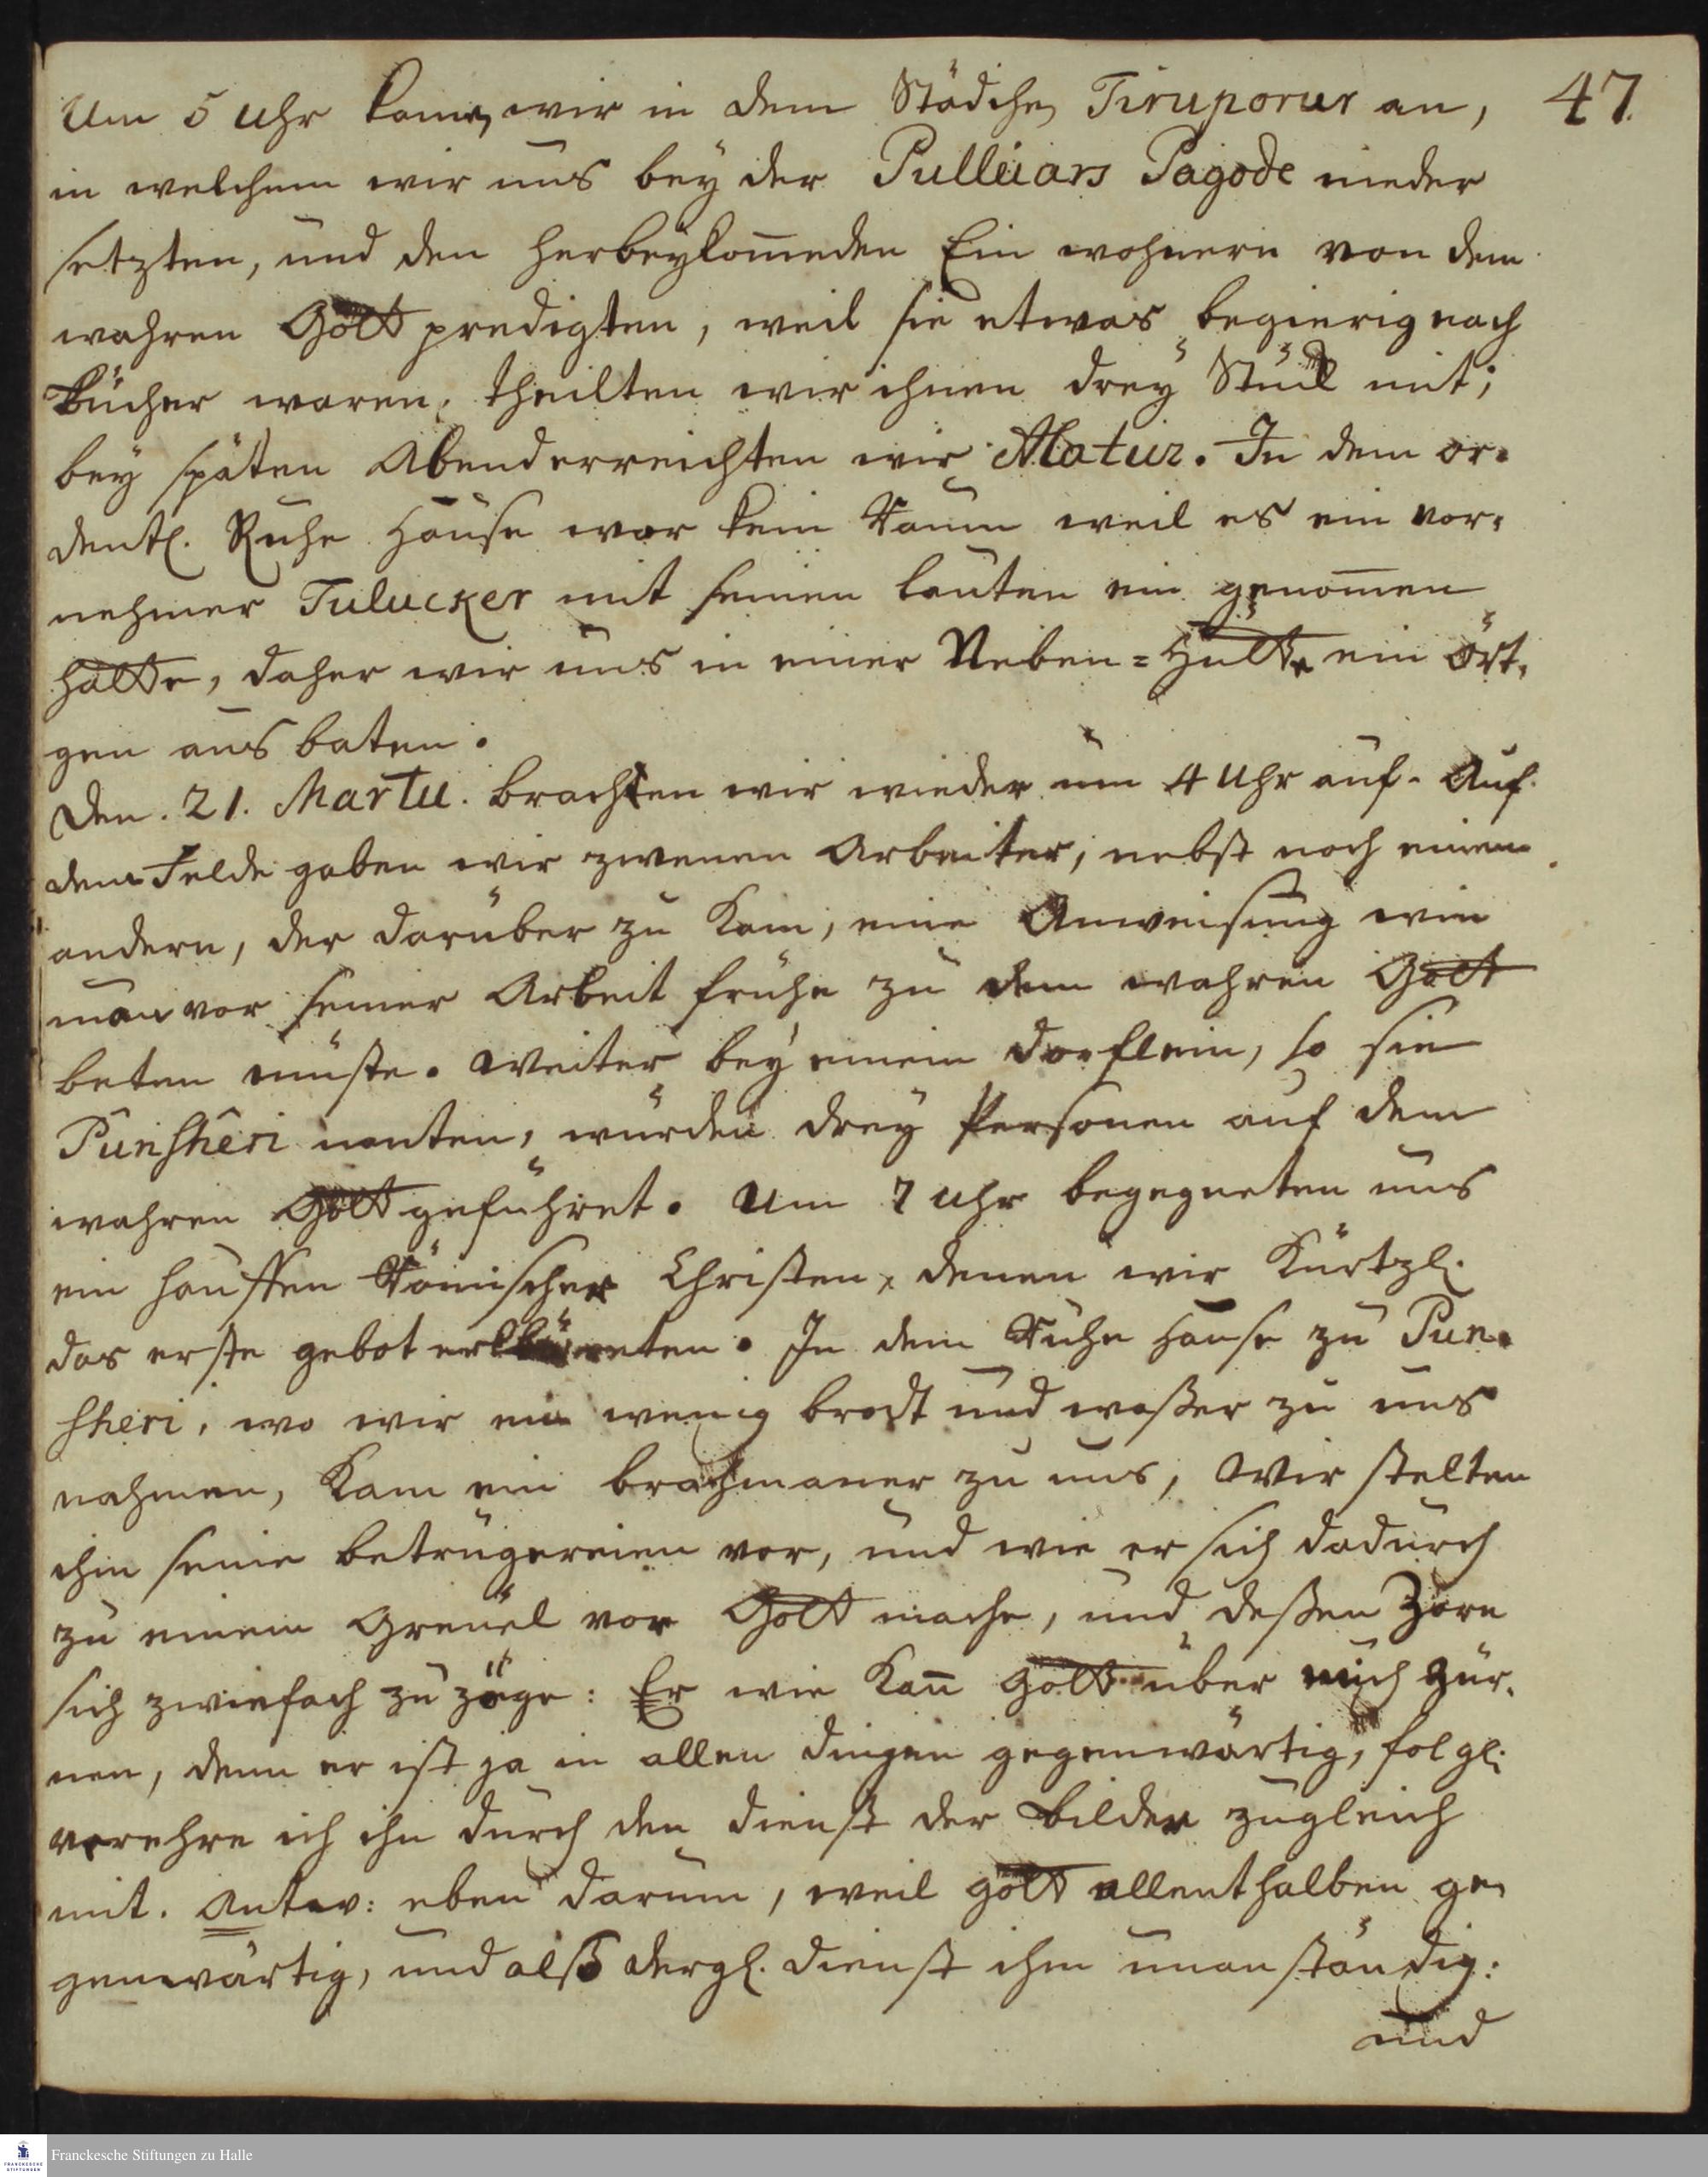 47.
Um 5 Uhr kamen wir in dem Städchen Tiruporur an,
in welchem wir uns bey der Pulleiars Pagode nieder
setzten, und den herbeykom̅enden Ein wohnern von dem
wahren Gott predigten, weil sie etwas begierig nach
Bücher waren, theilten wir ihnen drey Stück mit;
bey späten Abend erreichten wir Alatur. In dem or-
dentl. Ruhe Hause war kein Raum weil es ein vor-
nehmer Tulucker mit seinen leuten ein genom̅en
hatte, daher wir uns in einer Neben=Hütte ein Ört-
gen aus baten.
Den. 21. Martii. brachten wir wieder um 4 Uhr auf. Auf
dem Felde gaben wir zweenen Arbeiter, nebst noch einem
andern, der darüber zu kam, eine Anweisung wie
man vor seiner Arbeit frühe zu dem wahren Gott
beten müste. Weiter bey einem Dorflein, so sie
Punsheri nenten, wurden drey Personen auf dem
wahren Gott geführet. Um 7 Uhr begegneten uns
ein hauffen Römischer Christen, denen wir Kürtzl.
das erste gebot erkläreten. In dem Ruhe Hause zu Pun-
sheri, wo wir ein wenig brodt und waßer zu uns
nahmen, kam ein brachmaner zu uns, Wir stelten
ihm seine betrügereien vor, und wie er sich dadurch
zu einem Greuel vor Gott mache, und deßen Zorn
sich zwiefach zu zöge: Er wie kan̅ Gott über mich zür-
nen, denn er ist ja in allen dingen gegenwärtig, folgl.
verehre ich ihn durch den dienst der Bilder zugleich
mit. Antw: eben darum, weil Gott allenthalben ge-
genwärtig, und also dergl. dienst ihm unanständig:
und
Franckesche Stiftungen zu Halle